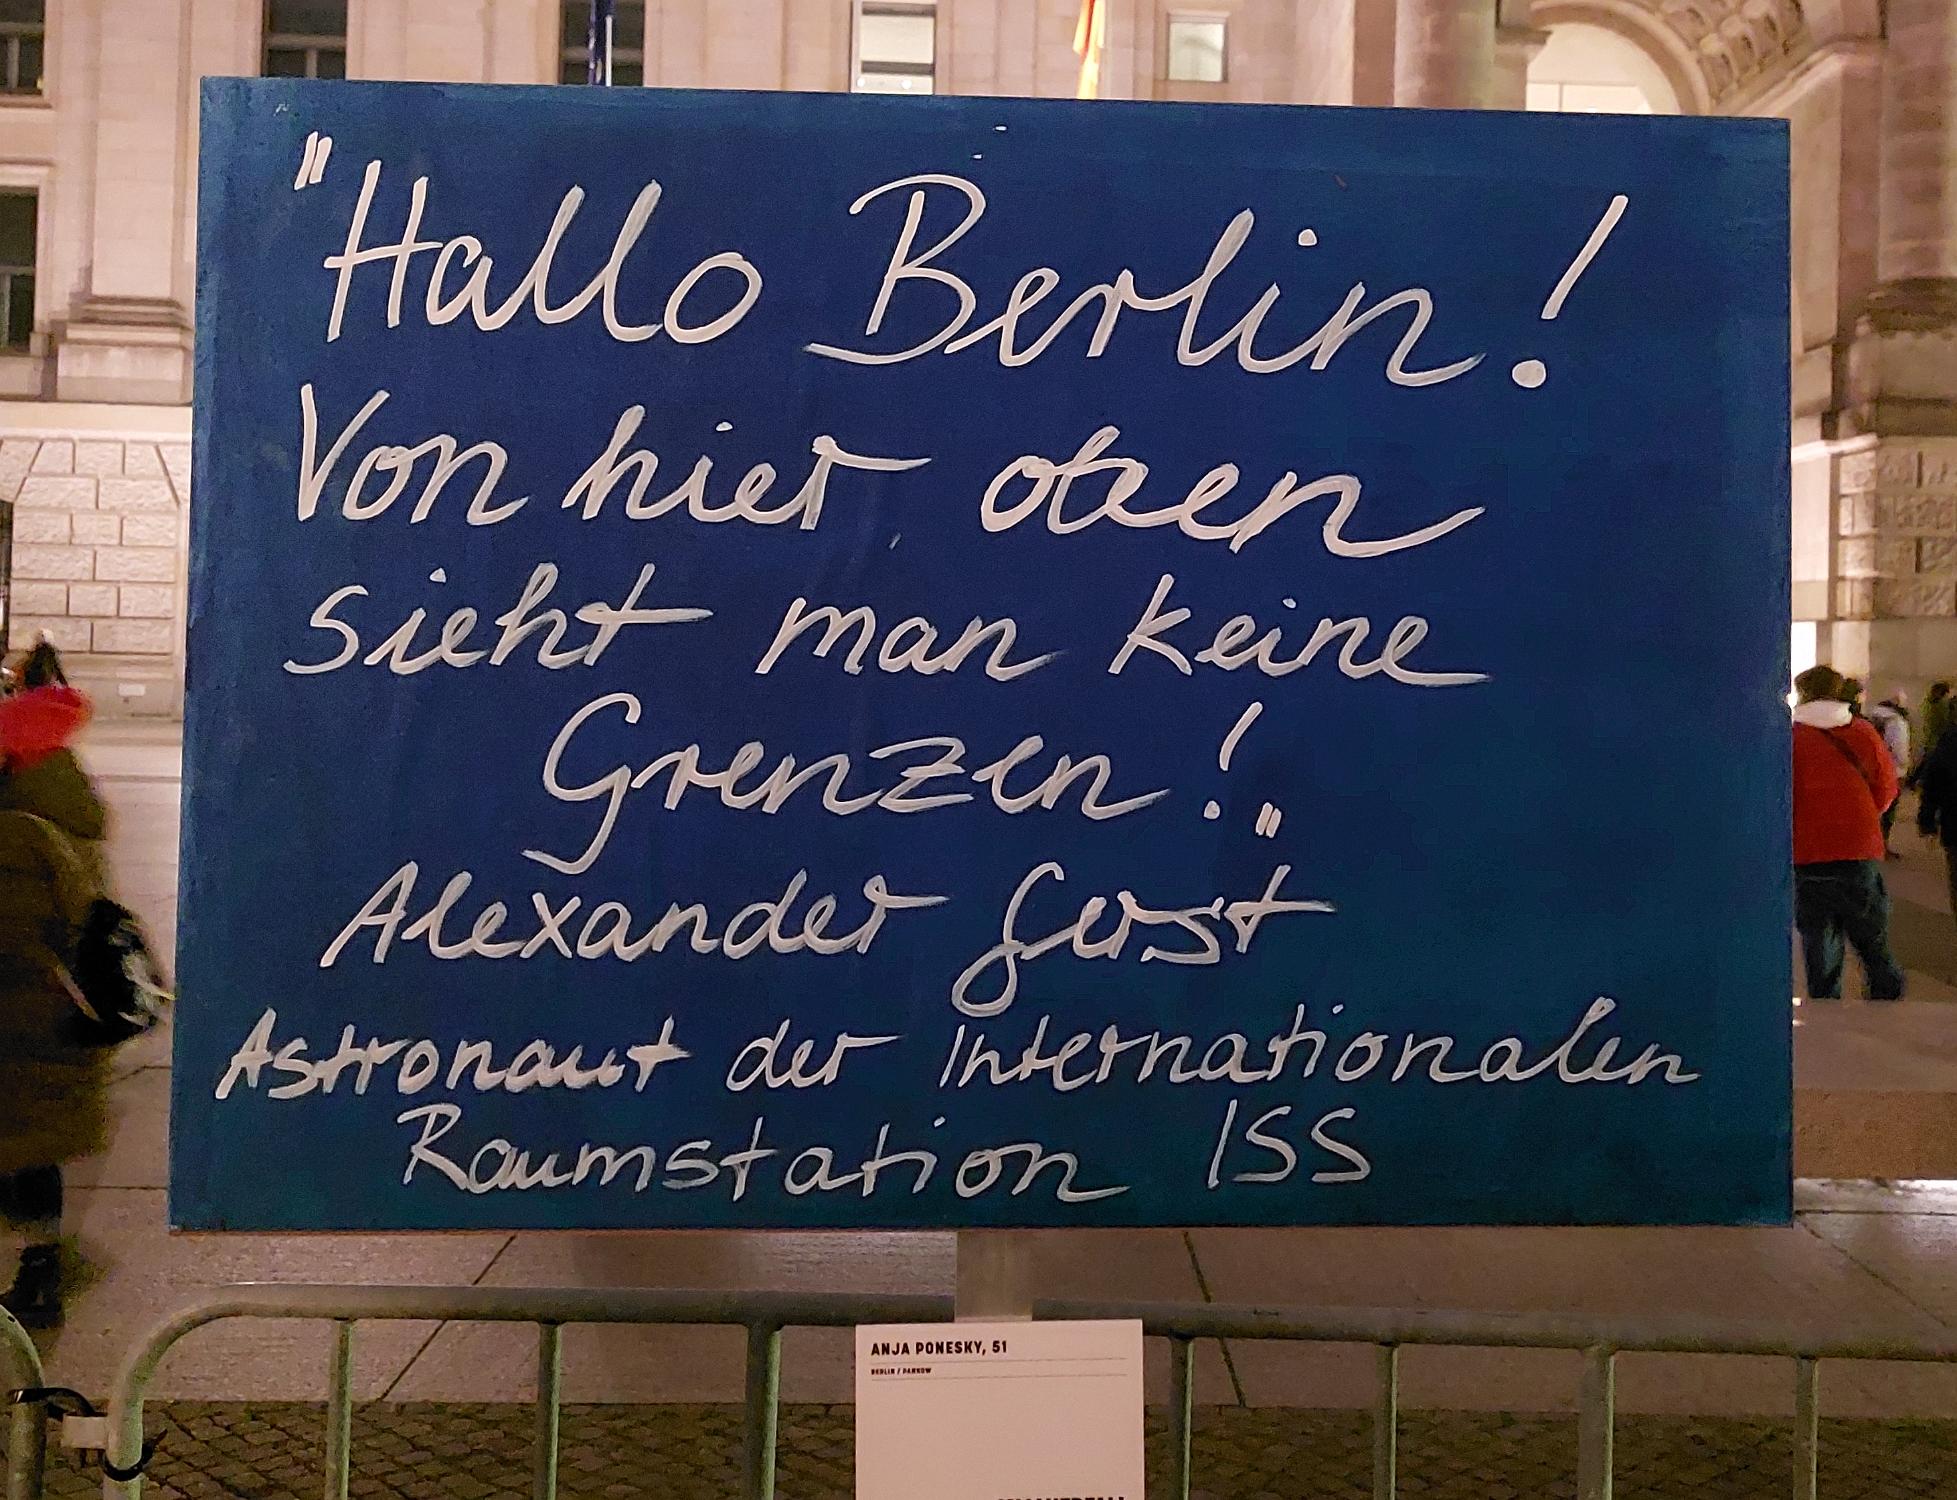 "Hallo Berlin!
Von hier oben
sieht man keine
Grenzen!"
Alexander Gerst
Astronaut der Internationalen
Raumstation ISS
ANJA PONESKY, 51
BERLIN / PANKOW